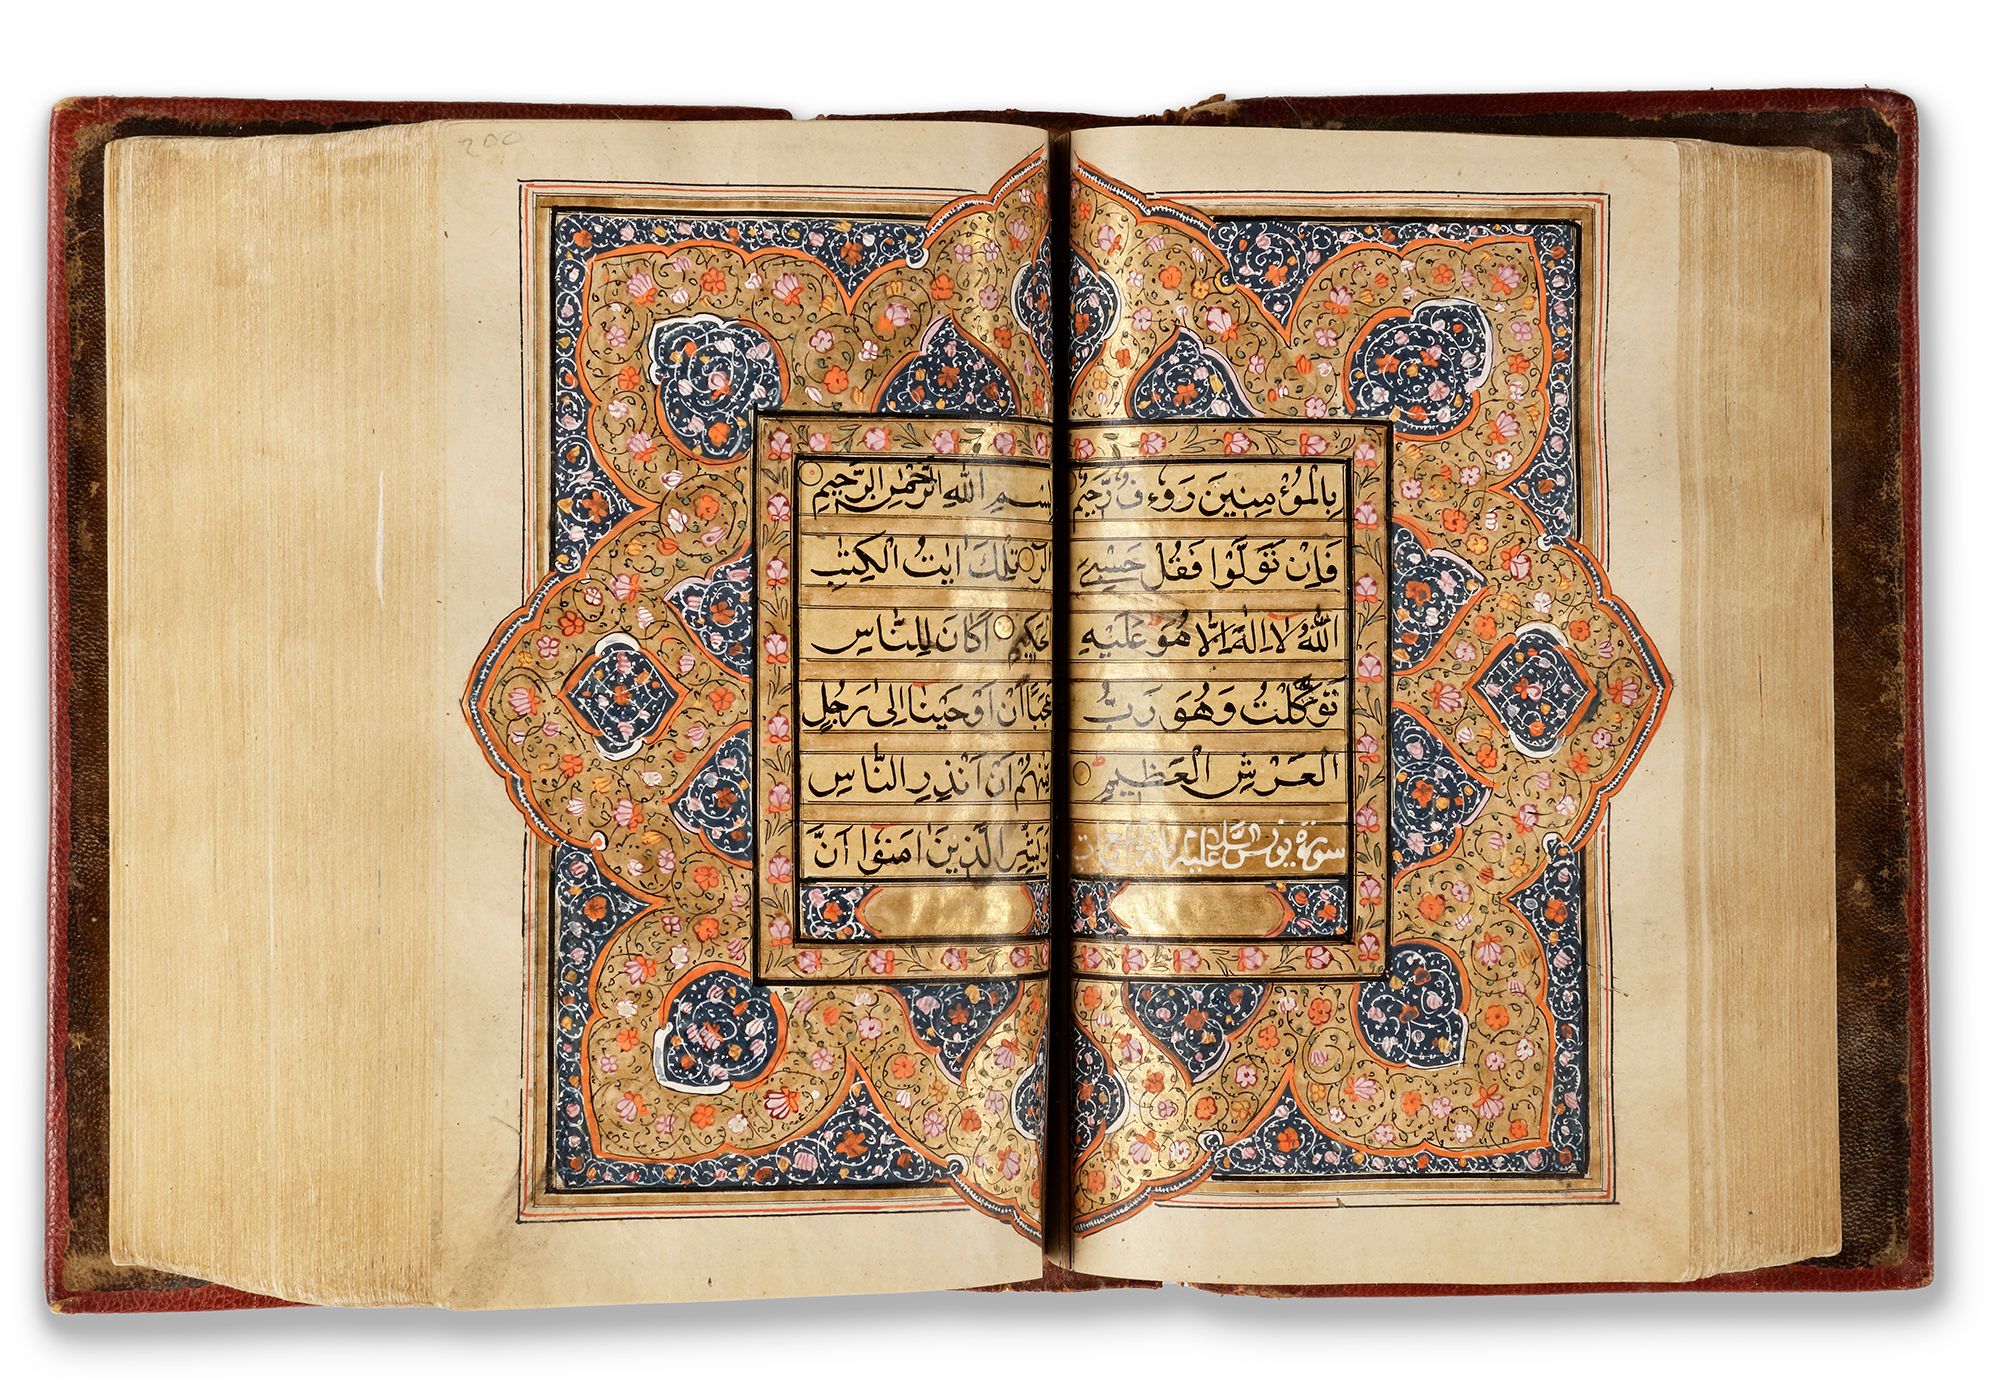 بِالْمُؤْمِنِينَ رَءُوفٌ رَحِيمٌ
فَإِنْ تَوَلَّوْا فَقُلْ حَسْبِيَ
اللَّهُ لَا إِلَٰهَ إِلَّا هُوَ عَلَيْهِ
تَوَكَّلْتُ وَهُوَ رَبُّ
الْعَرْشِ الْعَظِيمِ
سورة يونس عليه السلام
بِسْمِ اللَّهِ الرَّحْمَٰنِ الرَّحِيمِ
الٓرٰ تِلْكَ اٰيٰتُ الْكِتٰبِ
الْحَكِيمِ اَكَانَ لِلنَّاسِ
عَجَبًا اَنْ اَوْحَيْنَا اِلٰى رَجُلٍ
مِنْهُمْ اَنْ اَنْذِرِ النَّاسَ
وَبَشِّرِ الَّذِينَ اٰمَنُوا اَنَّ
200